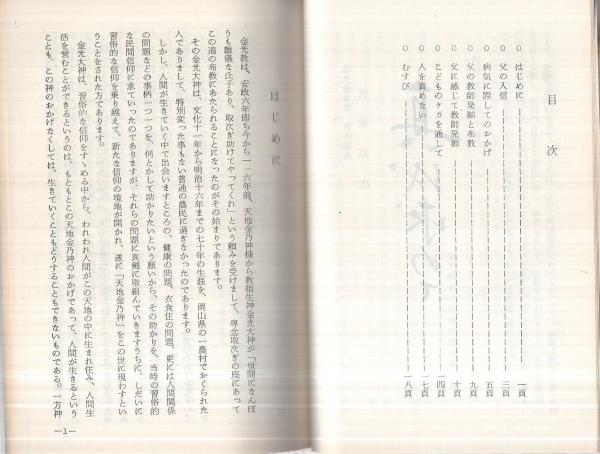 目次
○ はじめに 一頁
○ 父の入信 三頁
○ 病気に際してのおかげ 五頁
○ 父の教師発願と布教 九頁
○ 父に感じて教師発願 十頁
○ こどものケガを通して 一四頁
○ 人を責めない 一七頁
○ むすび 一八頁
はじめに
金光教は、安政六年即ち今から一一六年前、天地金乃神様から教祖生神金光大神が「世間になんぼ
うも難儀な氏子あり、取次ぎ助けてやってくれ」という頼みを受けまして、専念取次ぎの座にあって
この道の布教にあたられることになったのがその始まりであります。
その金光大神は、文化十一年から明治十六年までの七十年の生涯を、岡山県の一農村でおくられた
人でありまして、特別変った事もない普通の農民に過ぎなかったのであります。
しかし、人間が生きていく中で出会いますところの、健康の問題、衣食住の問題、更には人間関係
の問題などの事柄一つ一つを、何とかして助かりたいという願いから、その助かりを、当時の習俗的
な民間信仰に求ていったのでありますが、それらの問題に真剣に取組んでいきますうちに、しだいに
習俗的な信仰を乗り越えて、新たな信仰の境地が開かれ、遂に「天地金乃神」をこの世に現わすとい
うことをされた方であります。
金光大神は、習俗的な信仰をすゝめる中から、われわれ人間がこの天地の中に生まれ住み、人間生
活を営むことができるというのは、もともとこの天地金乃神のおかげであって、人間が生きるという
ことも、この神のおかげなくしては、生きていくこともどうすることもできないものである。一方神
—1—